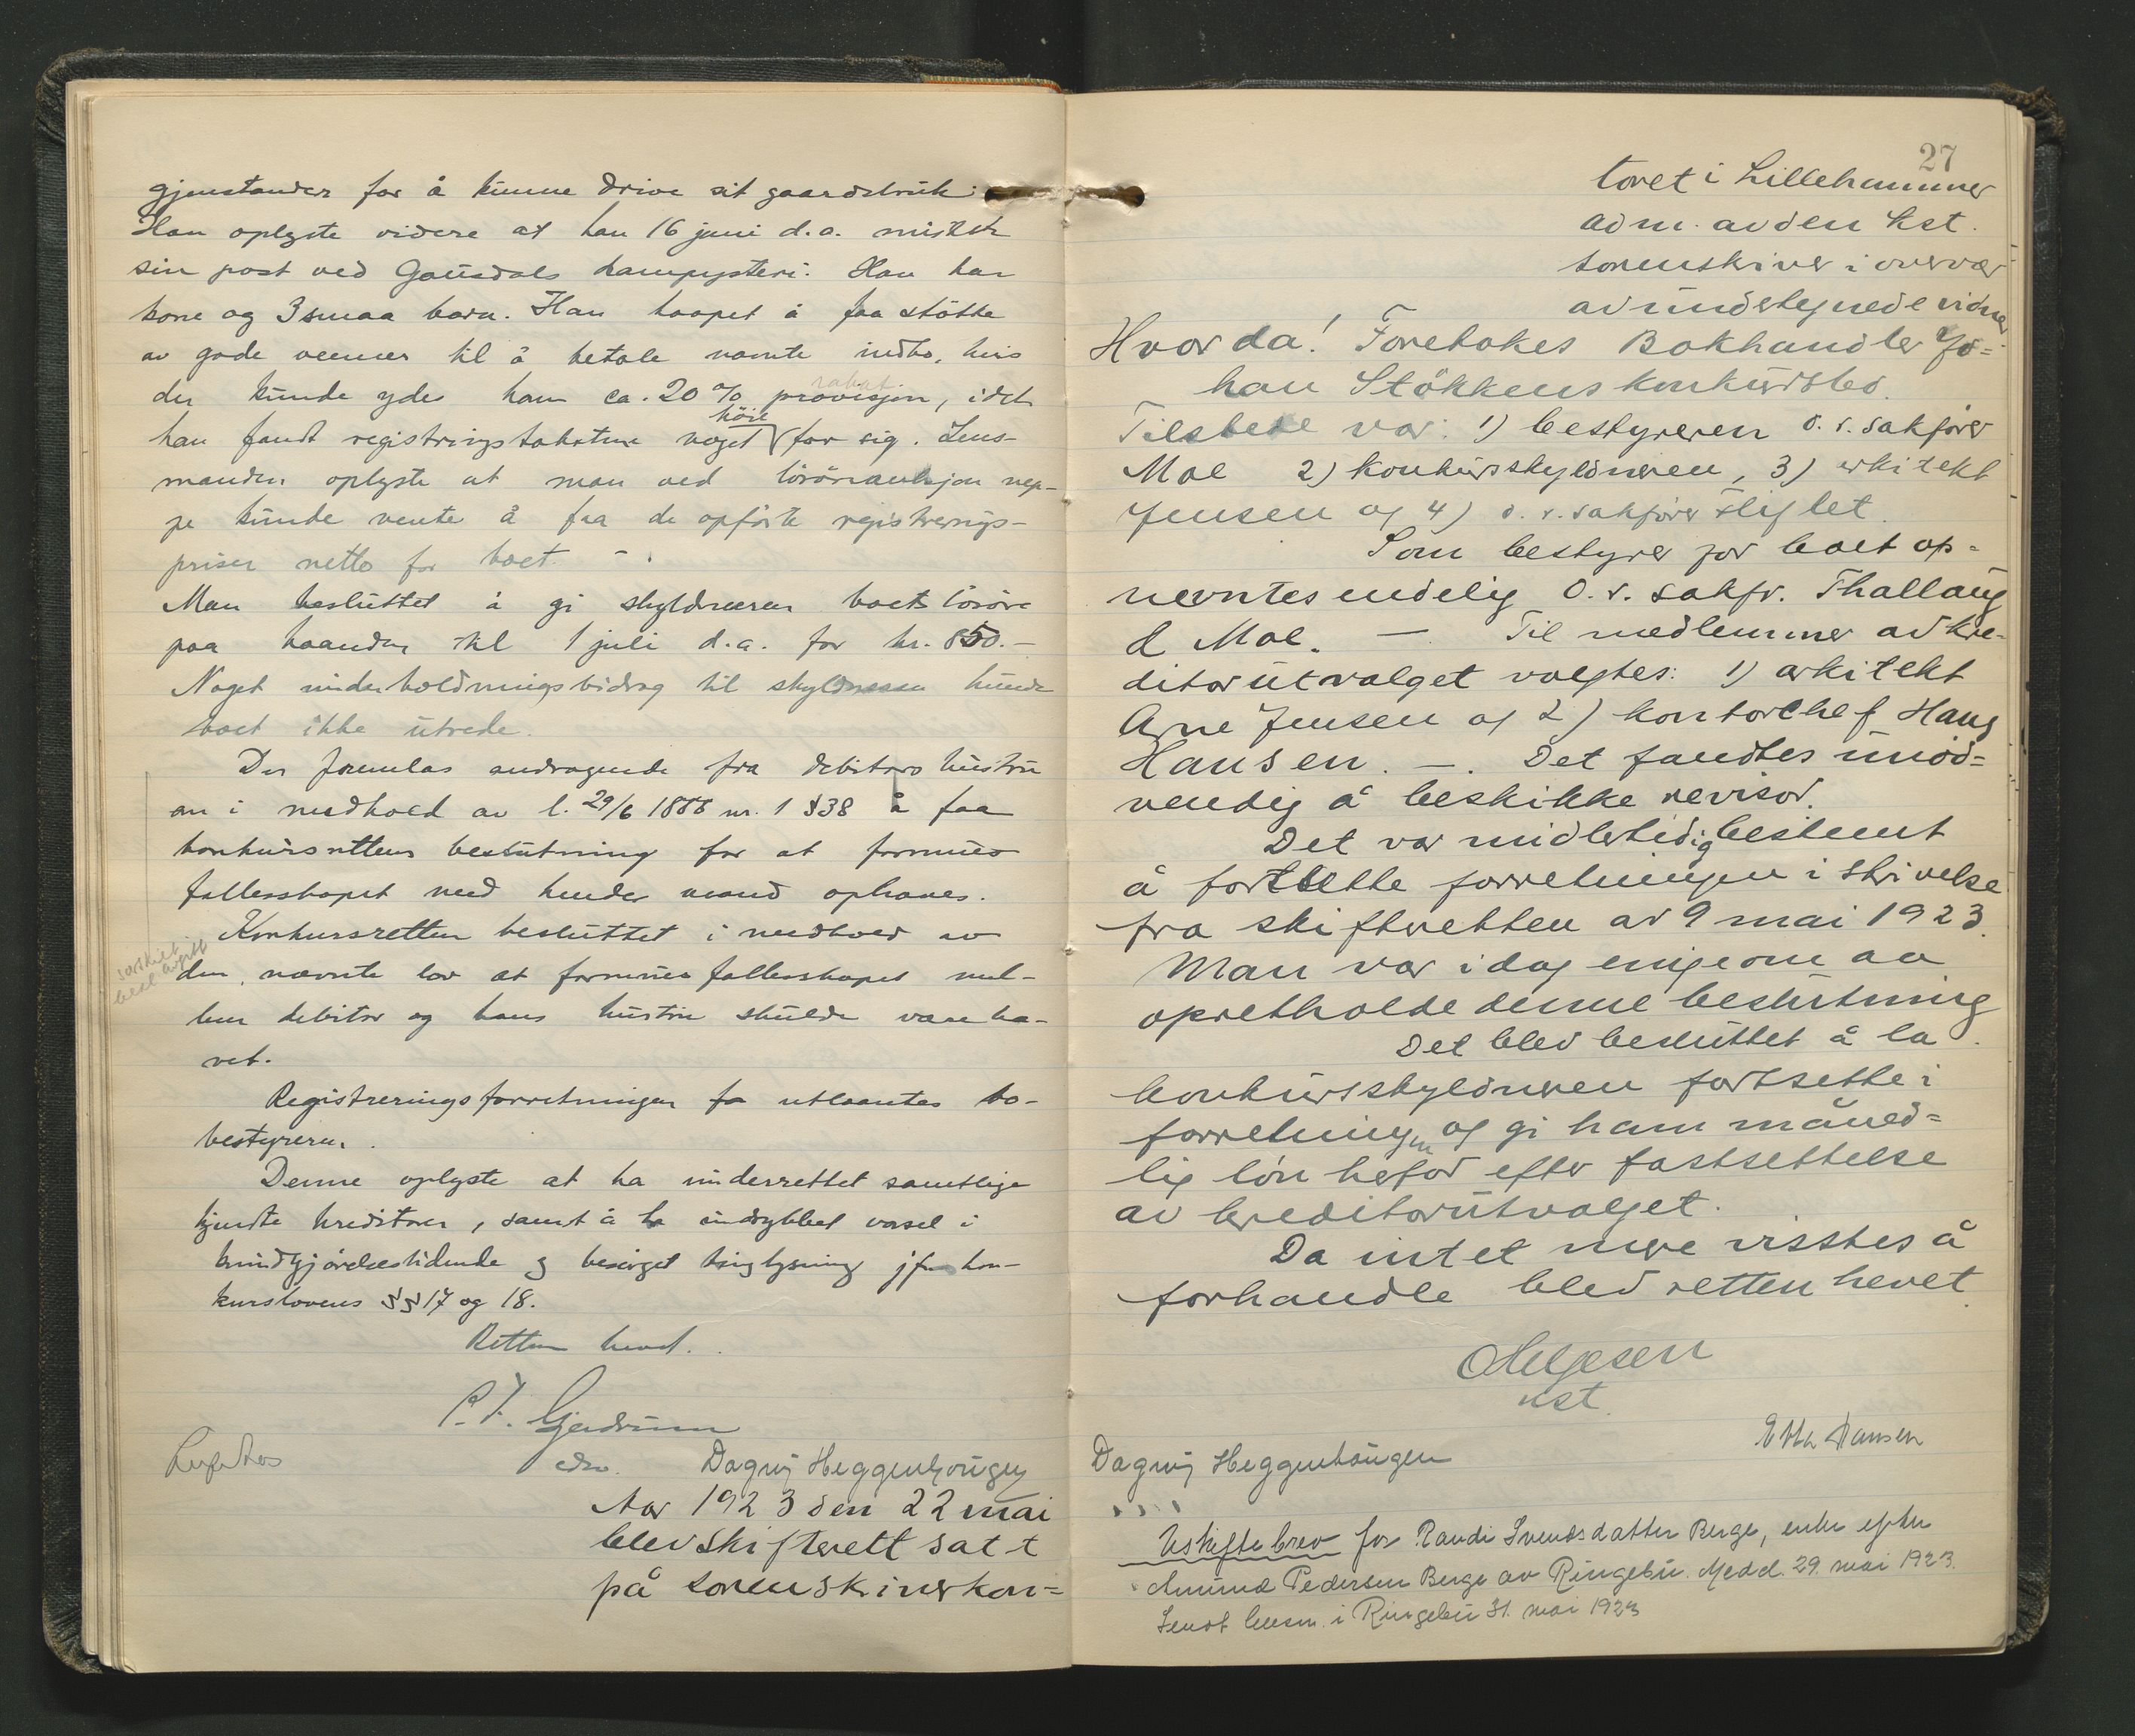 gjenstander for å kunne drive sit gaardsbruk.
Han oplyste videre at han 16 juni d.a. mister
sin post ved Gausdals hampysteri. Han har
kone og 3 smaa barn. Han haapet å faa stötte
av gode venner til å betale nævnte indbo, hvis
der kunde ydes ham ca. 20 % provisjon, idet
rabat
han fandt registringstakstene noget höie for sig. Lens-
manden oplyste at man ved lösöreauksjon nep-
pe kunde vente å faa de opförte registrerings-
priser netto for boet. -
Man besluttet å gi skyldneren boets lösöre
paa haanden til 1 juli d.a. for kr. 850.-
Noget underholdningsbidrag til skyldneren kunde
boet ikke utrede.
Der forelaa andragende fra debitors hustru
om i medhold av l. 29/6 1888 nr. 1 §38 å faa
konkursrettens beslutning for at formues-
fællesskapet med hendes mand ophæves.
Konkursretten besluttet i medhold av
den nævnte lov at formuesfællesskapet mel-
lem debitor og hans hustru skulde være hæ-
vet.
særskilt
besl. avgitt
Registreringsforretningen fa utlaantes bo-
bestyreren.
Denne oplyste at ha underrettet samtlige
kjendte kreditorer, samt å ha indrykket varsel i
kundgjörelsestidende og besörget tinglysning jfr kon-
kurslovens §§ 17 og 18.
Retten hævet.
P. T. Gjerdrum
edsv. Dagny Heggenhougen
Aar 1923 den 22 mai
blev skifterett satt
på sorenskriverkon=
27
toret i Lillehammer
adm. av den kst.
sorenskriver i overvær
av undertegnede vidner
Hvorda! Foretokes Bokhandler Jo=
han Stökkens konkursbo.
Tilstede var: 1) bestyreren o.r. sakförer
Moe 2) konkursskyldneren, 3) arkitekt
Jensen og 4) o.r. sakförer Fliflet.
Som bestyrer for boet op=
nevntes endelig O.r. sakfr. Thallaug
& Moe. — Til medlemmer av kre-
ditorutvalget valgtes: 1) arkitekt
Arne Jensen og 2) kontorchef Hans
Hansen. —. Det fandtes unöd=
vendig å beskikke revisor.
Det var midlertidig bestemt
å fortsette forretningen i skrivelse
fra skifteretten av 9 mai 1923.
Man var idag enige om aa
opretholde denne beslutning
Det blev besluttet å la
konkursskyldneren fortsette i
forretningen og gi ham måned=
lig lön herfor efter fastsettelse
av kreditorutvalget.
Da intet mere visstes å
forhandle blev retten hevet.
Helgesen
kst.
Dagny Heggenhougen
Hansen
Uskiftebrev for Randi Svendsdatter Berge, enke efter
Amund Pedersen Berge av Ringebu. Medd. 29. mai 1923.
Sendt lensm. i Ringebu 31. mai 1923